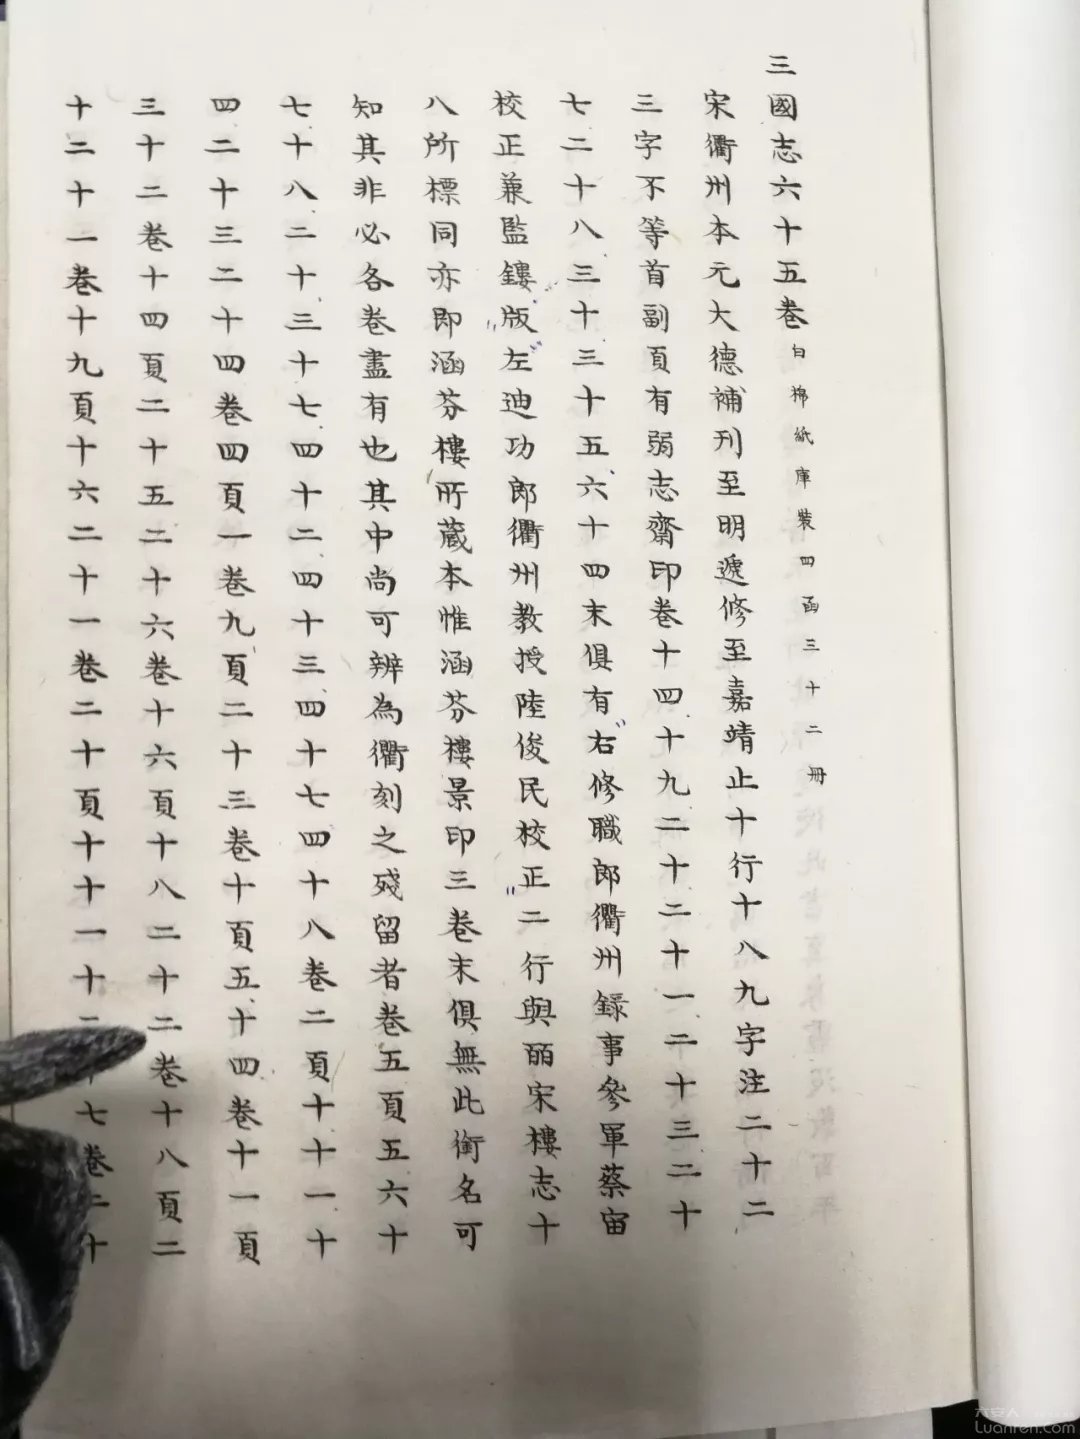 三國志六十五卷白棉紙庫裝四函三十二冊
宋衢州本元大德補刊至明遞修至嘉靖止十行十八九字注二十二
三字不等首副頁有弱志齋印卷十四十九二十二十一二十三二十
七二十八三十三十五六十四末俱有右修職郎衢州錄事參軍蔡宙
校正兼監鏤版左迪功郎衢州教授陸俊民校正二行與皕宋樓志十
八所標同亦即涵芬樓所藏本惟涵芬樓景印三卷末俱無此銜名可
知其非必各卷盡有也其中尚可辨為衢刻之殘留者卷五頁五六十
七十八二十三十七四十二四十三四十七四十八卷二頁十十一十
四二十三二十四卷四頁一卷九頁二十三卷十頁五十四卷十一頁
三十二卷十四頁二十五二十六卷十六頁十八二十二卷十八頁二
十二十一卷十九頁十六二十一卷二十頁十十一十二十七卷二十
六安人
Luanren.com